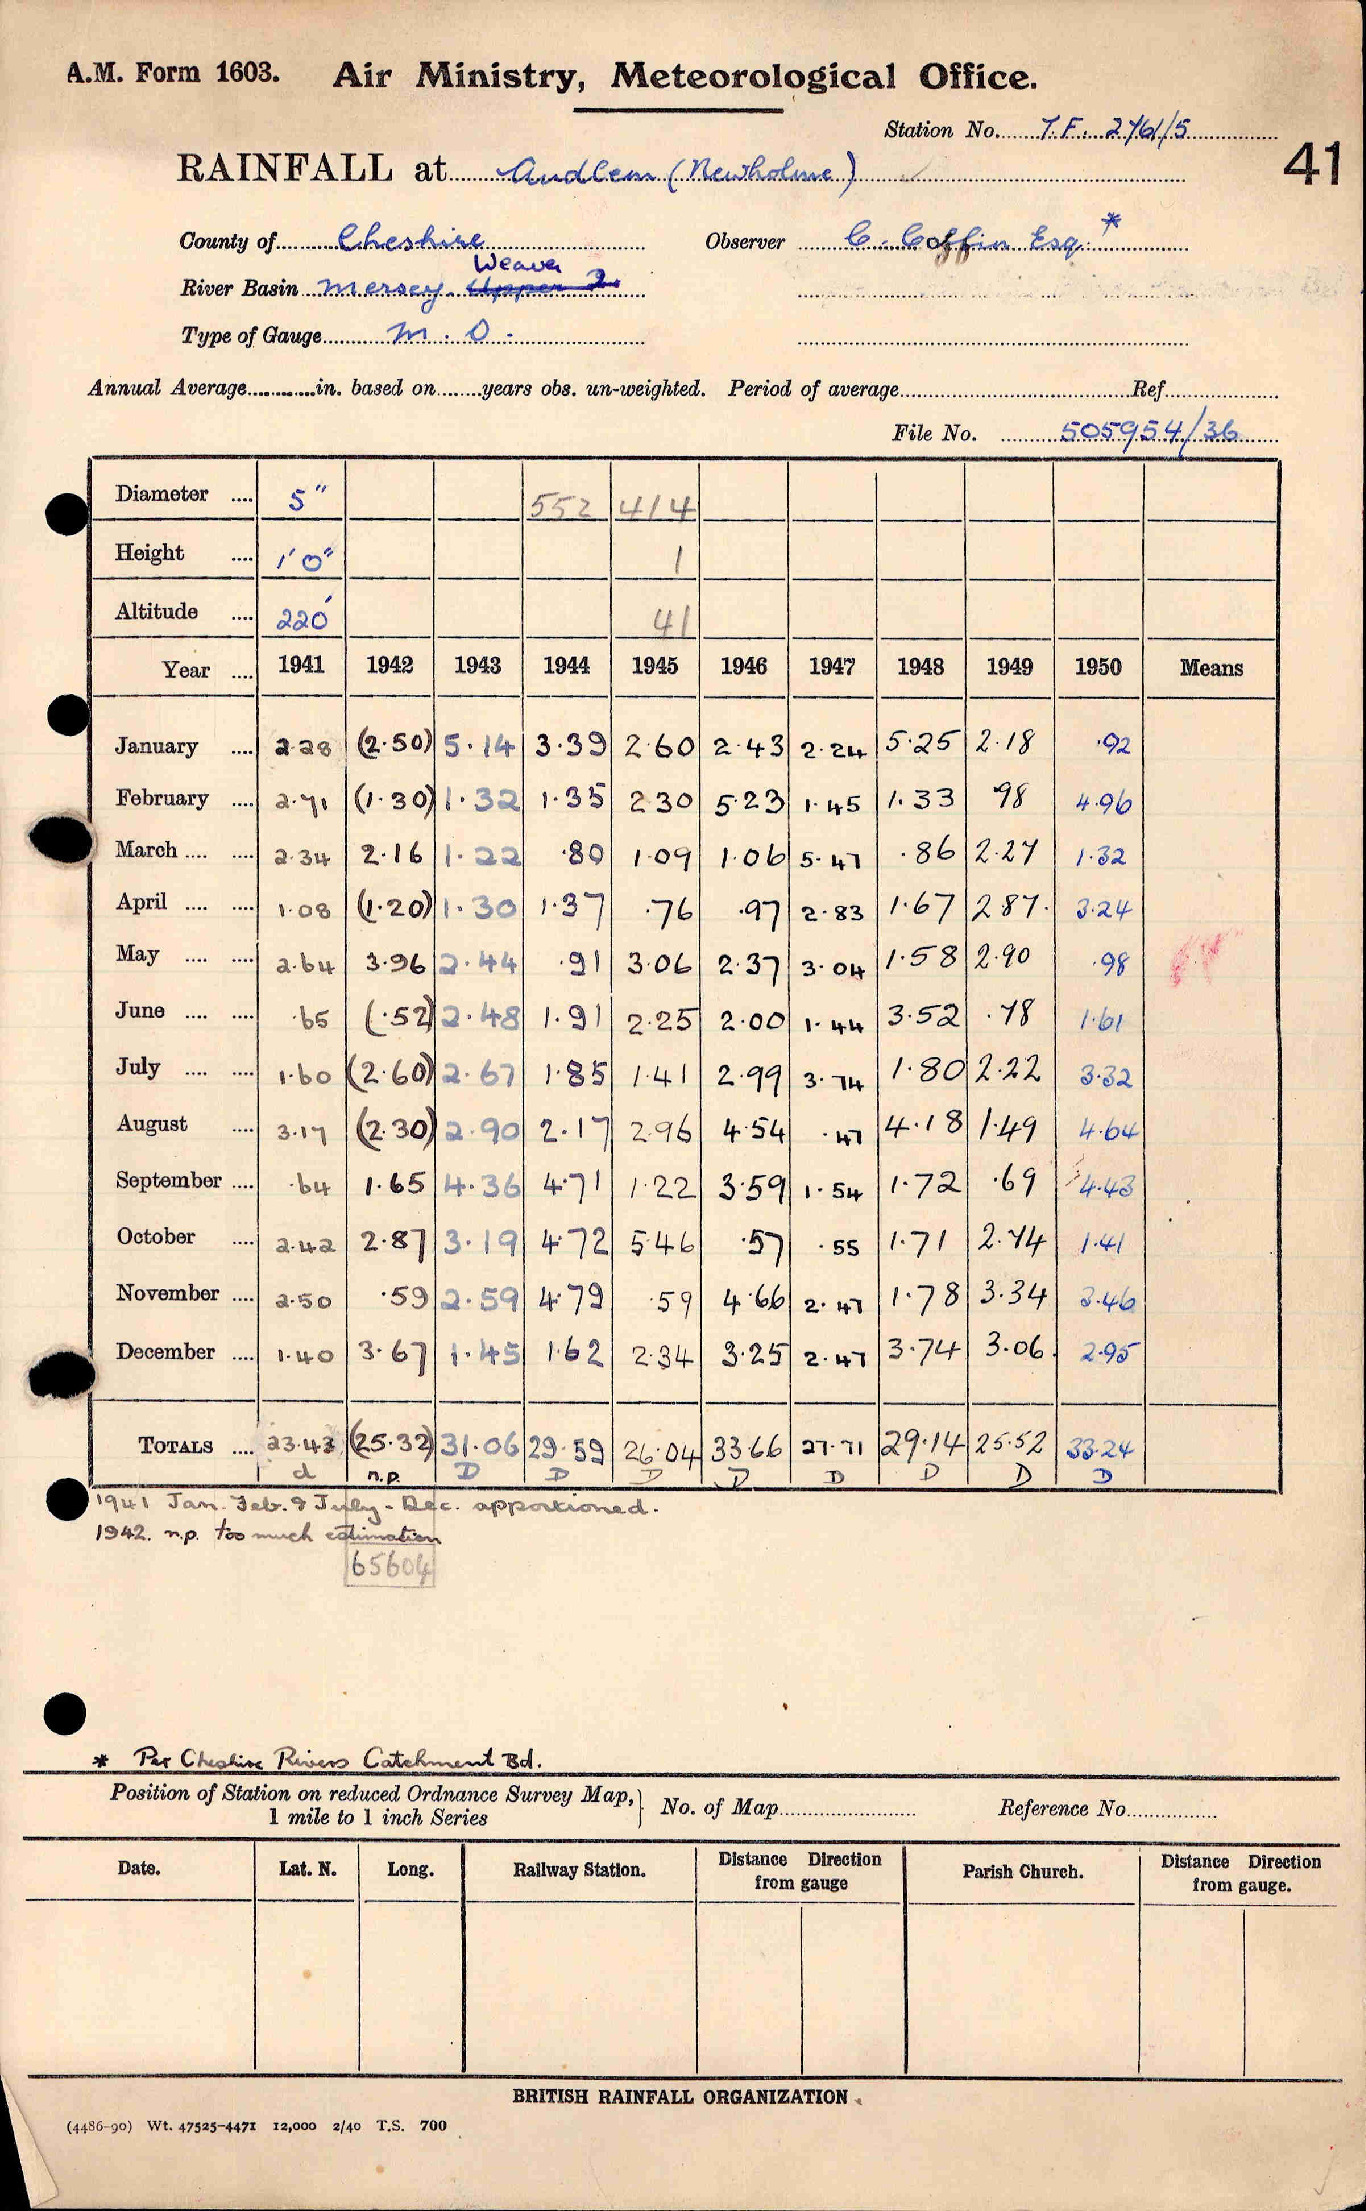 A.M. Form 1603. Air Ministry, Meteorological Office.
Station No. T.F. 2761/5
41
RAINFALL at Audlem (Newholme)
County of Cheshire Observer C. Coffin Esq. *
Weaver
River Basin Mersey. Upper 2
Type of Gauge M. O.
Annual Average in. based on years obs. un-weighted. Period of average Ref.
File No. 505954/36
Diameter 5" 552 414
Height 1'0" 1
Altitude 220' 41
Year 1941 1942 1943 1944 1945 1946 1947 1948 1949 1950 Means
January 2.28 (2.50) 5.14 3.39 2.60 2.43 2.24 5.25 2.18 .92
February 2.71 (1.30) 1.32 1.35 2.30 5.23 1.45 1.33 .98 4.96
March 2.34 2.16 1.22 .80 1.09 1.06 5.47 .86 2.27 1.32
April 1.08 (1.20) 1.30 1.37 .76 .97 2.83 1.67 2.87 3.24
May 2.64 3.96 2.44 .91 3.06 2.37 3.04 1.58 2.90 .98
June .65 (.52) 2.48 1.91 2.25 2.00 1.44 3.52 .78 1.61
July 1.60 (2.60) 2.67 1.85 1.41 2.99 3.74 1.80 2.22 3.32
August 3.17 (2.30) 2.90 2.17 2.96 4.54 .47 4.18 1.49 4.64
September .64 1.65 4.36 4.71 1.22 3.59 1.54 1.72 .69 4.43
October 2.42 2.87 3.19 4.72 5.46 .57 .55 1.71 2.74 1.41
November 2.50 .59 2.59 4.79 .59 4.66 2.47 1.78 3.34 3.46
December 1.40 3.67 1.45 1.62 2.34 3.25 2.47 3.74 3.06 2.95
TOTALS 23.43 (25.32) 31.06 29.59 26.04 33.66 27.71 29.14 25.52 33.24
d n.p. D D D D D D D D
1941 Jan. Feb. & July - Dec. apportioned.
1942. n.p. too much estimation
65604
* Per Cheshire Rivers Catchment Bd.
Position of Station on reduced Ordnance Survey Map, 1 mile to 1 inch Series } No. of Map Reference No.
Date. Lat. N. Long. Railway Station. Distance Direction from gauge Parish Church. Distance Direction from gauge.
BRITISH RAINFALL ORGANIZATION
(4486-90) Wt. 47525-4471 12,000 2/40 T.S. 700